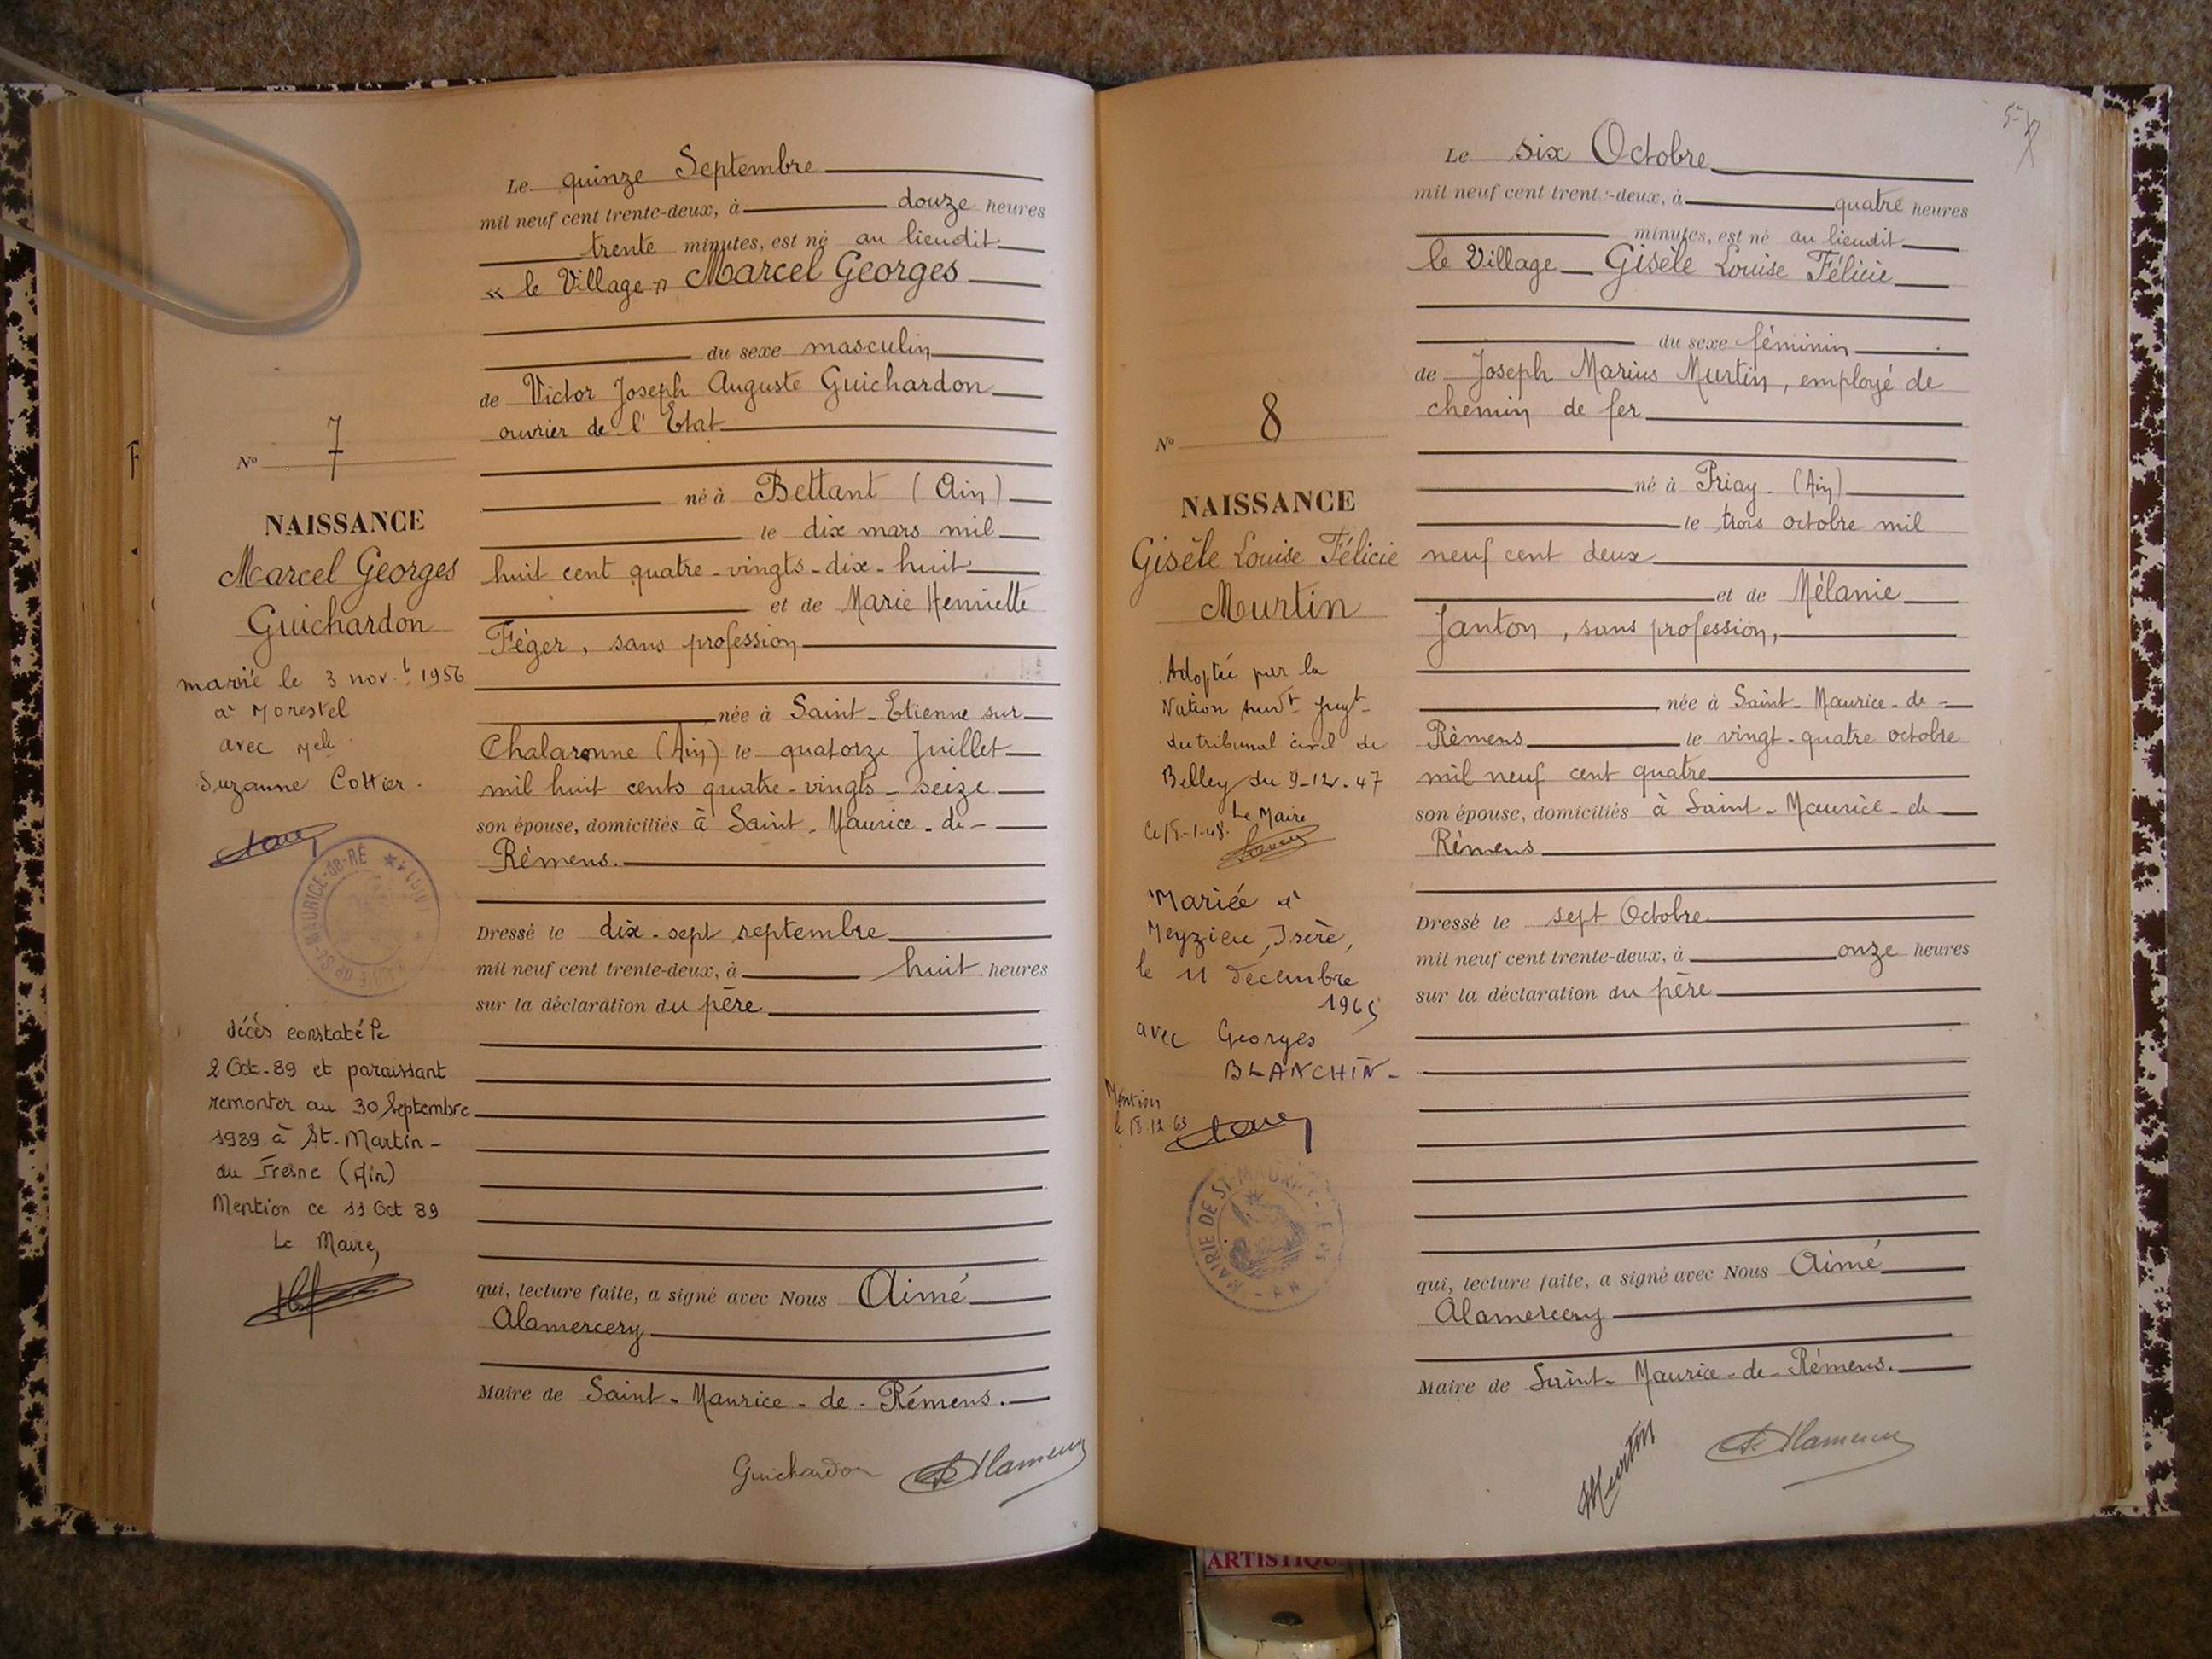 Le quinze Septembre
mil neuf cent trente-deux, à douze heures
trente minutes, est né au lieudit
« le Village » Marcel Georges
du sexe masculin
de Victor Joseph Auguste Guichardon
ouvrier de l'Etat
né à Bettant (Ain)
le dix mars mil
huit cent quatre-vingts-dix-huit
et de Marie Henriette
Féger, sans profession
née à Saint-Etienne sur
Chalaronne (Ain) le quatorze Juillet
mil huit cents quatre-vingts-seize
son épouse, domiciliés à Saint-Maurice-de-
Rémens.
Dressé le dix-sept septembre
mil neuf cent trente-deux, à huit heures
sur la déclaration du père
qui, lecture faite, a signé avec Nous Aimé
Alamercery
Maire de Saint-Maurice-de-Rémens.
Guichardon
N° 7
NAISSANCE
Marcel Georges
Guichardon
marié le 3 nov. 1956
à Morestel
avec Melle
Suzanne Cottier.
décès constaté le
2 Oct. 89 et paraissant
remonter au 30 Septembre
1989 à St-Martin-
du Fresne (Ain)
Mention ce 11 Oct 89
Le Maire,
57
Le six Octobre
mil neuf cent trente-deux, à quatre heures
minutes, est né au lieudit
le Village Gisèle Louise Félicie
du sexe féminin
de Joseph Marius Murtin, employé de
chemin de fer
né à Priay (Ain)
le trois octobre mil
neuf cent deux
et de Mélanie
Janton, sans profession,
née à Saint-Maurice-de-
Rémens le vingt-quatre octobre
mil neuf cent quatre
son épouse, domiciliés à Saint-Maurice-de
Rémens
Dressé le sept Octobre
mil neuf cent trente-deux, à onze heures
sur la déclaration du père
qui, lecture faite, a signé avec Nous Aimé
Alamercery
Maire de Saint-Maurice-de-Rémens.
Murtin
N° 8
NAISSANCE
Gisèle Louise Félicie
Murtin
Adoptée par la
Nation suivt jugt
du tribunal civil de
Belley du 9-12-47
Le Maire
Mariée à
Meyzieu, Isère,
le 11 décembre
1965
avec Georges
BLANCHIN-
Mention
le 18.12.65
MAIRIE DE ST-MAURICE
ARTISTIQU